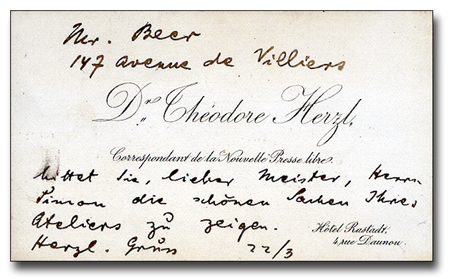 Mr. Beer
147 avenue de Villiers
Dr. Théodore Herzl,
Correspondant de la "Nouvelle Presse libre".
bittet Sie, lieber Meister, Herrn
die schönen Sachen Ihres
Ateliers zu zeigen.
Hôtel Rastadt.
4, rue Daunou.
Herzl. Gruss 22/3